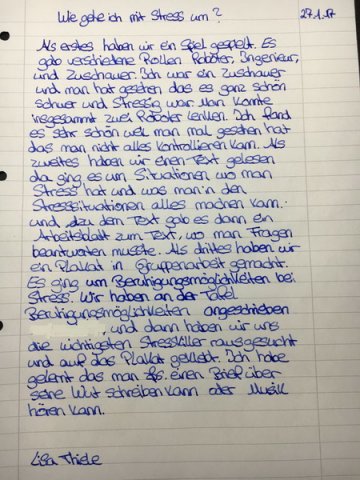 Wie gehe ich mit Stress um? 27.1.17
Als erstes haben wir ein Spiel gespielt. Es
gab verschiedene Rollen Roboter, Ingenieur,
und Zuschauer. Ich war ein Zuschauer
und man hat gesehen das es ganz schön
schwer und stressig war. Man konnte
insgesamt zwei Roboter lenken. Ich fand
es sehr schön weil man mal gesehen hat
das man nicht alles kontrollieren kann. Als
zweites haben wir einen Text gelesen
da ging es um Situationen wo man
Stress hat und was man in den
Stresssituationen alles machen kann.
und dzu dem Text gab es dann ein
Arbeitsblatt zum Text, wo man Fragen
beantworten musste. Als drittes haben wir
ein Plakat in gruppenarbeit gemacht.
Es ging um Beruhigungsmöglichkeiten bei
Stress. Wir haben an der Tafel
Beruhigungsmöglichkeiten angeschrieben
, und dann haben wir uns
die wichtigsten Stresskiller rausgesucht
und auf das Plakat geklebt. Ich habe
gelernt das man zb. einen Brief über
seine Wut schreiben kann oder Musik
hören kann.
Lisa Thiele